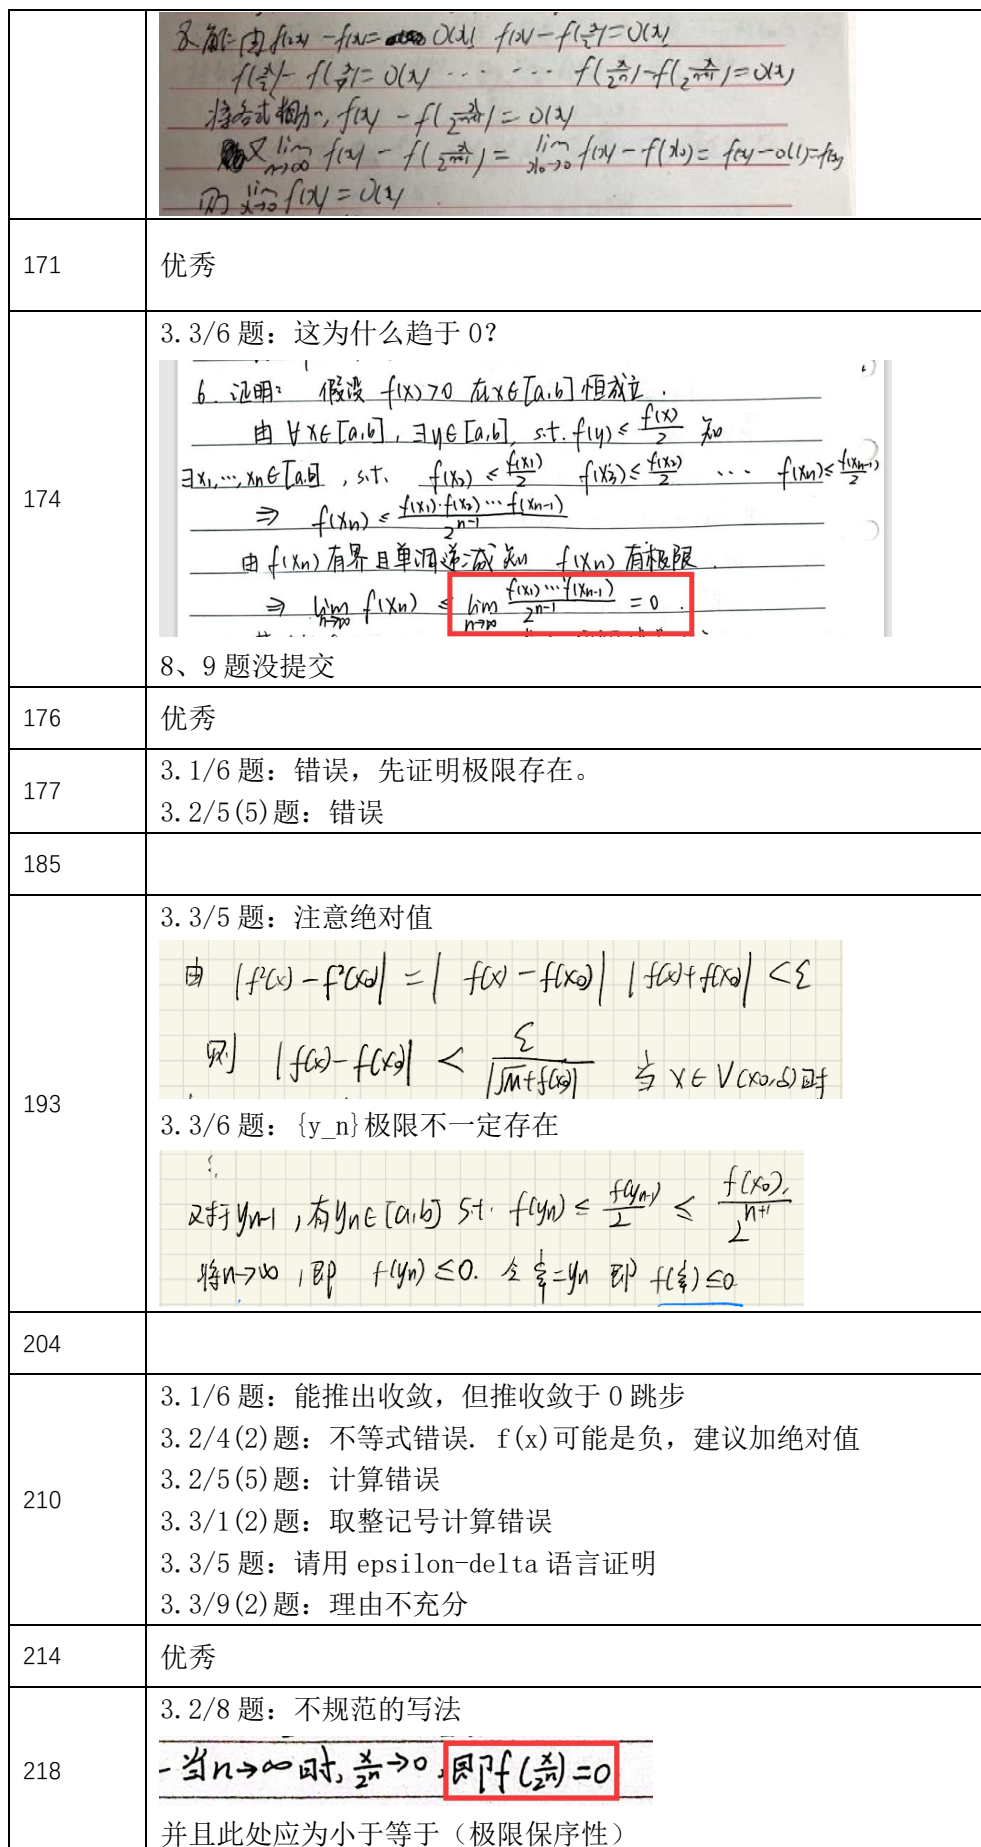 8.解:由f(2x)-f(x)=o(x) f(x)-f(x/2)=o(x)
f(x/2)-f(x/4)=o(x) ... ... f(x/2^n)-f(x/2^{n+1})=o(x)
将各式相加, f(x)-f(x/2^{n+1})=o(x)
又 lim_{n→∞} f(x)-f(x/2^{n+1})=lim_{x_0→0} f(x)-f(x_0)=f(x)-o(1)=f(x)
则 lim_{x→0} f(x)=o(x)
171 优秀
3.3/6题：这为什么趋于0？
6.证明: 假设 f(x)>0 在x∈[a,b]恒成立.
由 ∀x∈[a,b], ∃y∈[a,b], s.t. f(y)≤f(x)/2 知
∃x_1,…,x_n∈[a,b], s.t. f(x_2)≤f(x_1)/2 f(x_3)≤f(x_2)/2 … f(x_n)≤f(x_{n-1})/2
⇒ f(x_n)≤f(x_1)·f(x_2)…f(x_{n-1})/2^{n-1}
由f(x_n)有界且单调递减知 f(x_n)有极限.
174
⇒ lim_{n→∞} f(x_n)≤lim_{n→∞} f(x_1)…f(x_{n-1})/2^{n-1}=0.
8、9题没提交
176 优秀
177 3.1/6题：错误，先证明极限存在。
3.2/5(5)题：错误
185
3.3/5题：注意绝对值
由 |f²(x)-f²(x_0)|=|f(x)-f(x_0)||f(x)+f(x_0)|<ε
则 |f(x)-f(x_0)|<ε/|√m+f(x_0)| 当x∈V(x_0,δ)时
193
3.3/6题：{y_n}极限不一定存在
又对于y_{n-1},有y_n∈[a,b] s.t. f(y_n)≤f(y_{n-1})/2≤f(x_0)/2^{n+1}
将n→∞,即 f(y_n)≤0. 令ξ=y_n 即f(ξ)≤0
204
3.1/6题：能推出收敛，但推收敛于0跳步
3.2/4(2)题：不等式错误. f(x)可能是负，建议加绝对值
3.2/5(5)题：计算错误
210
3.3/1(2)题：取整记号计算错误
3.3/5题：请用epsilon-delta语言证明
3.3/9(2)题：理由不充分
214 优秀
3.2/8题：不规范的写法
218 当n→∞时, x/2^n→0,即f(x/2^n)=0
并且此处应为小于等于（极限保序性）